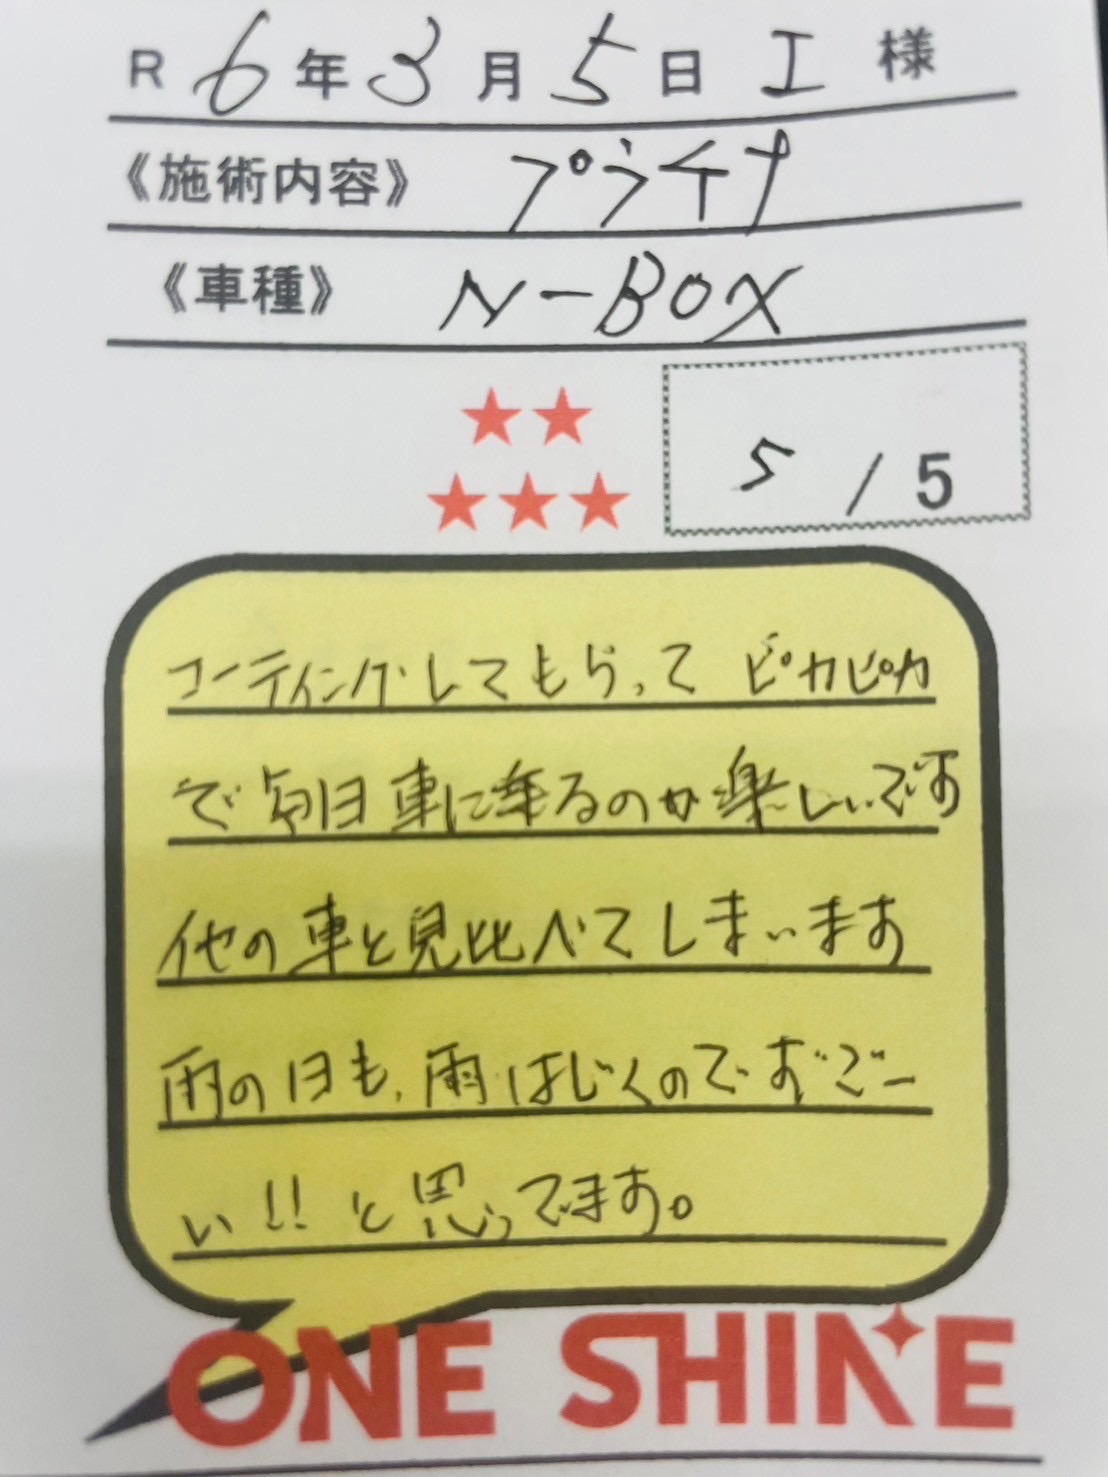 R 6年3月5日 I 様
《施術内容》 プラチナ
《車種》 N-BOX
5 / 5
コーティングしてもらって ピカピカ
で毎日車に乗るのが楽しいです
他の車と見比べてしまいます
雨の日も、雨はじくのですごー
い!!と思ってます。
ONE SHINE